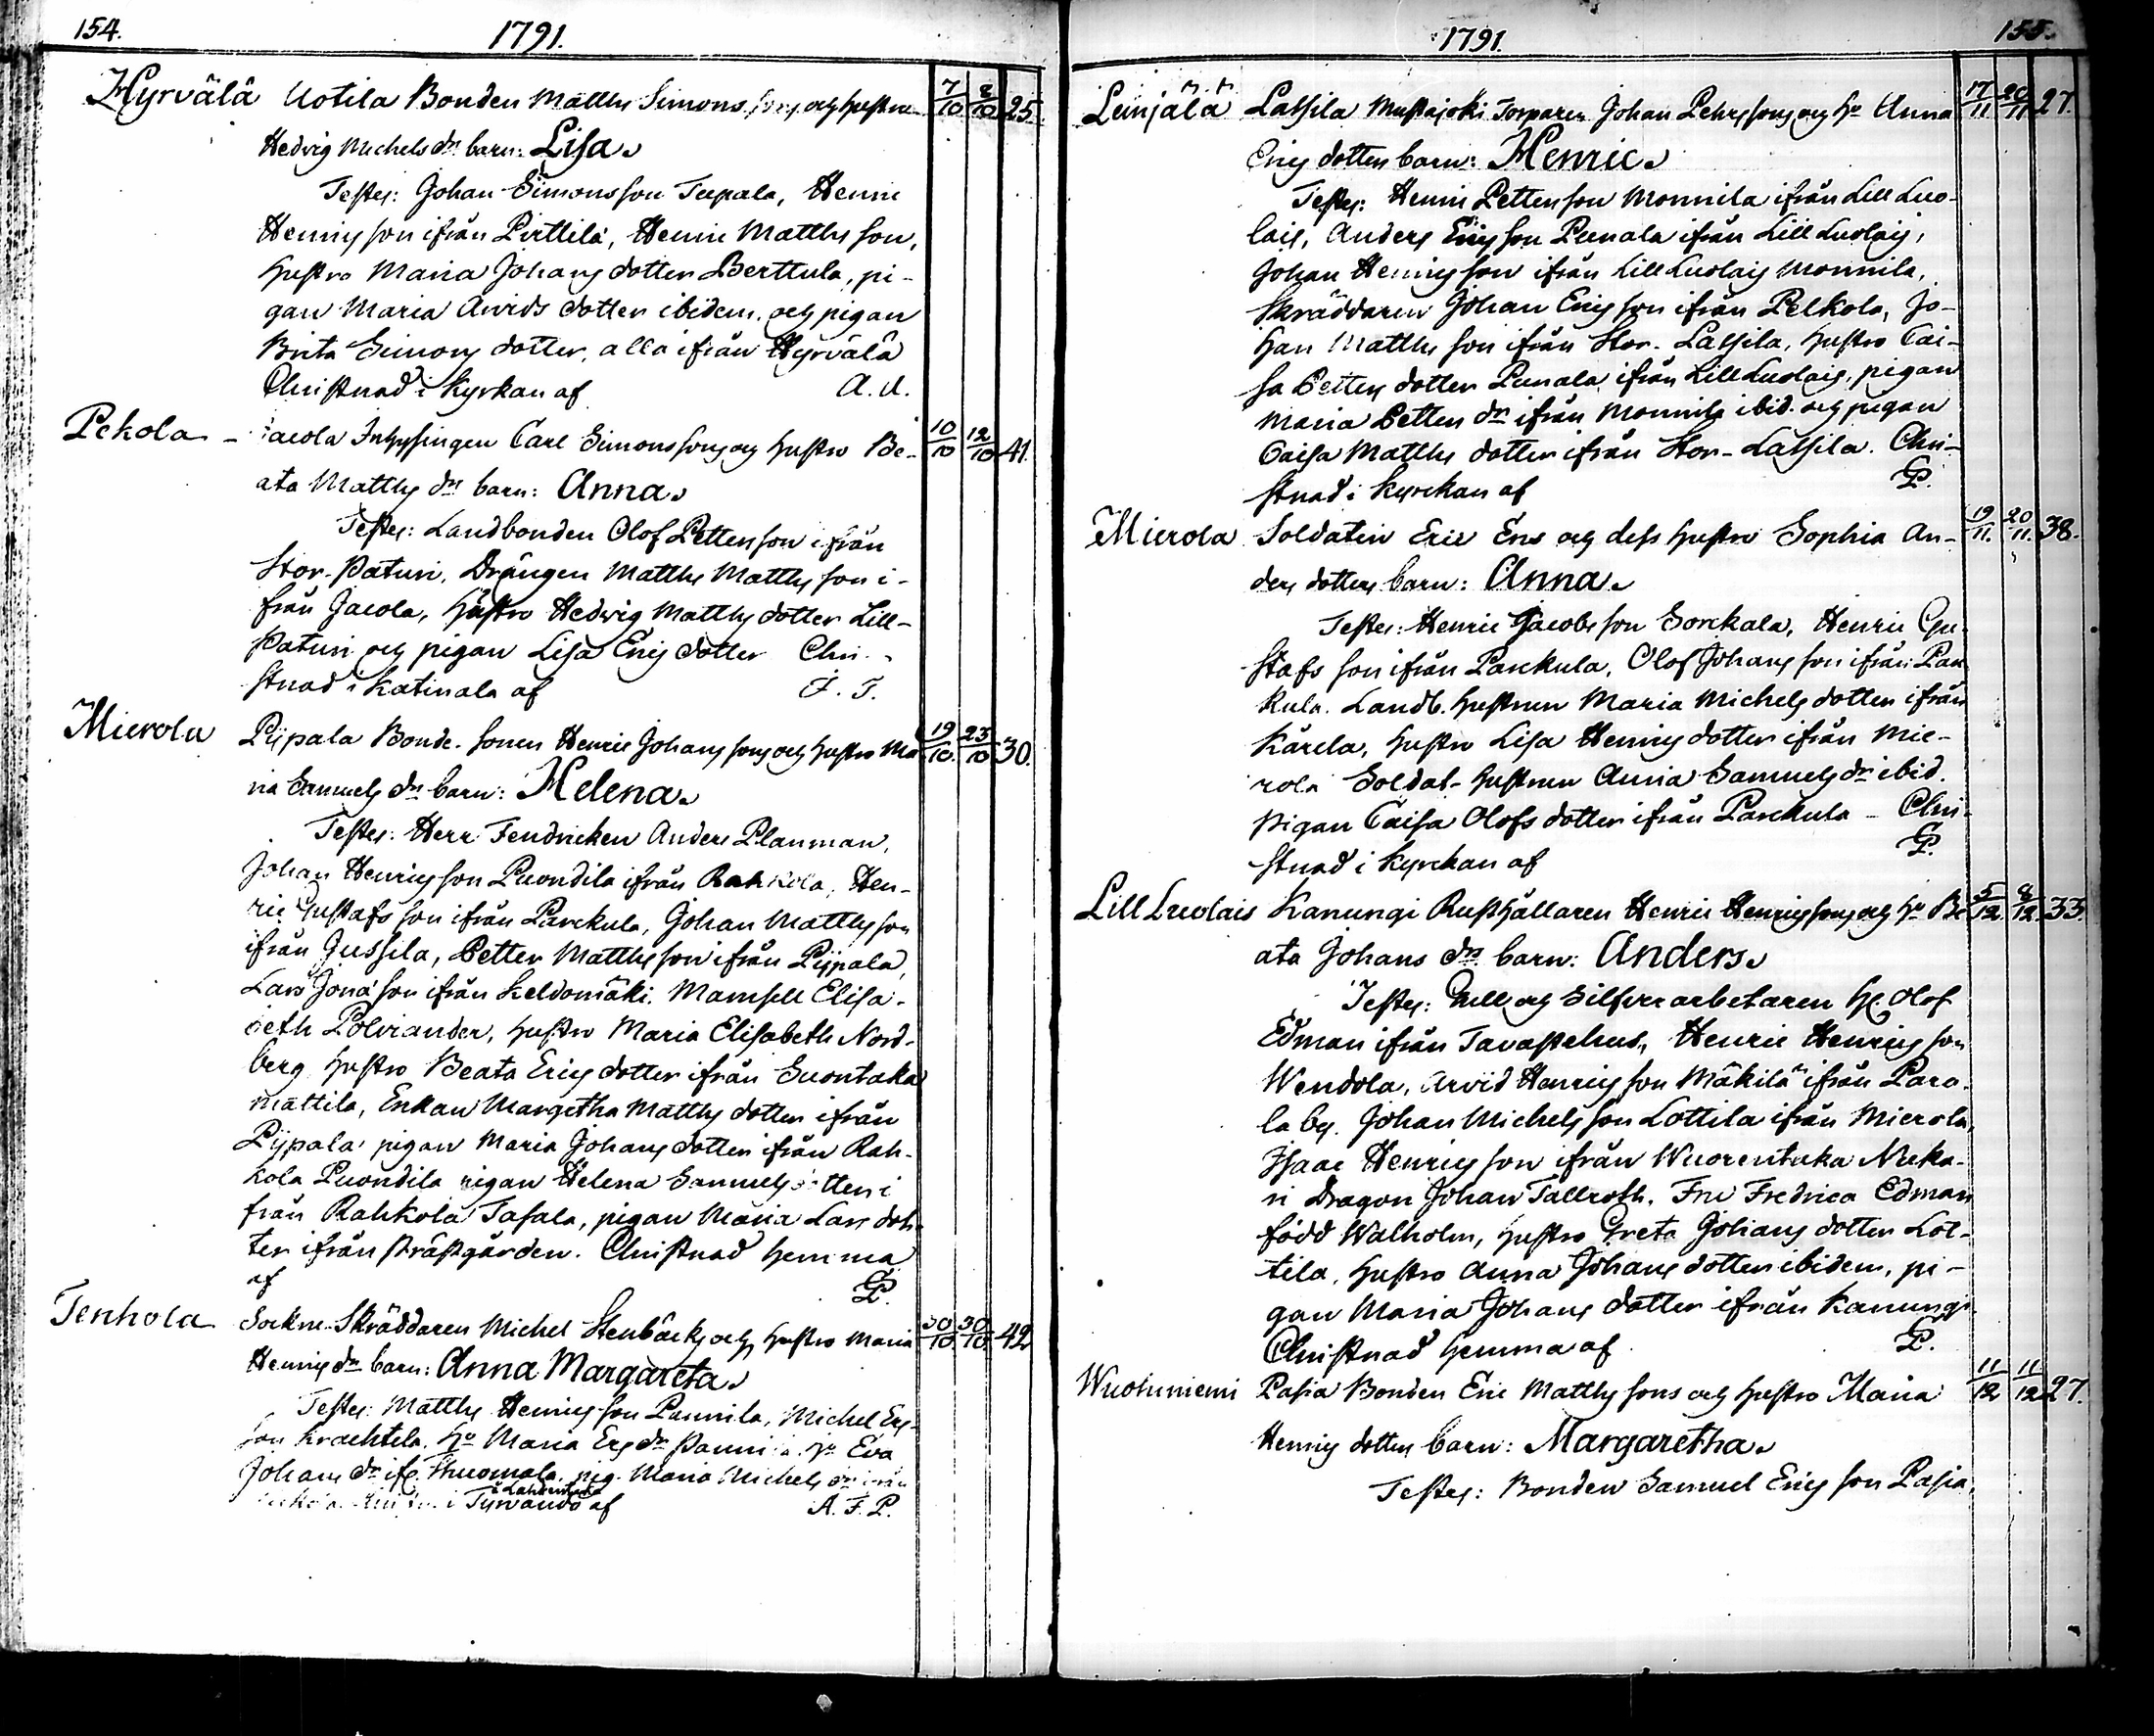 154. 1791.
Hyrvälä Uotila Bonden Matths Simons sons och hustru 7/10 8/10 25.
Hedvig Michels drs barn: Lisa.
Testes: Johan Simonsson Teepala, Henric
Henricsson ifrån Pirttilä, Henric Matths son,
hustro Maria Johans dotter Berttula, pi-
gan Maria Arvids dotter ibidem. och pigan
Brita Simons dotter, alla ifrån Hyrvälä
Christnad i Kyrkan af A. A.
Pekola - Jacola Inhysingen Carl Simonssons och hustro Be- 10/10 12/10 41.
ata Matths drs barn: Anna.
Testes: Landbonden Olof Pettersson ifrån
Stor-Paturi, Drängen Matths Matths son i-
från Jacola, hustro Hedvig Matths dotter Lill-
Paturi och pigan Lisa Erics dotter Chri-
stnad i Katinala af J. T.
Mierola Pijpala Bonde-sonen Henric Johans sons och hustro Ma 19/10. 23/10 30.
ria Samuels drs barn: Helena.
Testes: Herr Fendricken Anders Planman,
Johan Henrics son Puondila ifrån Rahkola, Hen-
ric Gustafs son ifrån Parckula, Johan Matths son
ifrån Jussila, Petter Matths son ifrån Pijpala,
Lars Jona son ifrån Keldomäki. Mamsell Elisa-
beth Polviander, hustro Maria Elisabeth Nord-
berg hustro Beata Erics dotter ifrån Suontaka
mattila, Enkan Margetha Matths dotter ifrån
Pijpala, pigan Maria Johans dotter ifrån Rah-
kola Puondila pigan Helena Samuels dotter i
från Rahkola Tasala, pigan Maria Lars dot-
ter ifrån Prästgården. Christnad hemma
af GP.
Tenhola Sockne-Skräddaren Michel Stenbäcks och hustro Maria 30/10. 30/10. 42
Henrics dr barn: Anna Margareta.
Testes: Matths Henrics son Pannila, Michel Ers-
son Krachtila. ho Maria Ers dr Panni Eva
Johans dr ifr. Thuomala, pig. Maria Michels dr ifrån
i Lahdentaka
i Tyrvändö af A. F. P.
1791. 155.
Leinjälä Lassila Mustajoki Torparen Johan Pehrssons och ho Anna 17/11 20/11 27.
Erics dotters barn: Henric.
Testes: Henric Petterson Monnila ifrån Lill Luo-
lais, Anders Ericsson Punala ifrån Lill Luolais,
Johan Henrics son ifrån Lill Luolais Monnila,
Skräddaren Johan Ericsson ifrån Pelkola, Jo-
han Matths son ifrån Stor-Lassila, hustro Cai-
sa Petters dotter Punala ifrån Lill Luolais, pigan
Maria Petters dr ifrån Monnila ibid. och pigan
Caisa Matths dotter ifrån Stor-Lassila. Chri-
stnad i Kyrckan af GP.
Mierola Soldaten Eric Ens och dess hustro Sophia An- 19/11. 20/11. 38.
ders dotters barn: Anna.
Testes: Henric Jacobs son Sorckala, Henric Gu-
stafs son ifrån Parckula, Olof Johans son ifrån Par
kula. Landb. hustrun Maria Michels dotter ifrån
Kärela, hustro Lisa Henrics dotter ifrån Mie-
rola Soldat-hustrun Anna Samuels dr ibid.
pigan Caisa Olofs dotter ifrån Parckula - Chri-
stnad i Kyrckan af GP.
Lill Luolais Kanungi Rusthållaren Henric Henrics sons och ho Be 5/12 8/12 33
ata Johans drs barn: Anders.
Testes: Gull och Silfver arbetaren Hr. Olof
Edman ifrån Tavastehus, Henric Henrics son
Wendola, Arvid Henrics son Mäkilä ifrån Paro-
la by. Johan Michels son Lottila ifrån Mierola,
Isaac Henrics son ifrån Wuorentaka Nuka-
ri Dragon Johan Tallroth. Fru Fredrica Edman
född Walholm, hustro Greta Johans dotter Lot-
tila, hustro Anna Johans dotter ibidem, pi-
gan Maria Johans dotter ifrån Kanungi
Christnad hemma af GP.
Wuohiniemi Pasia Bonden Eric Matths sons och hustro Maria 11/12 11/12 27.
Henrics dotters barn: Margaretha.
Testes: Bonden Samuel Erics son Pasia,